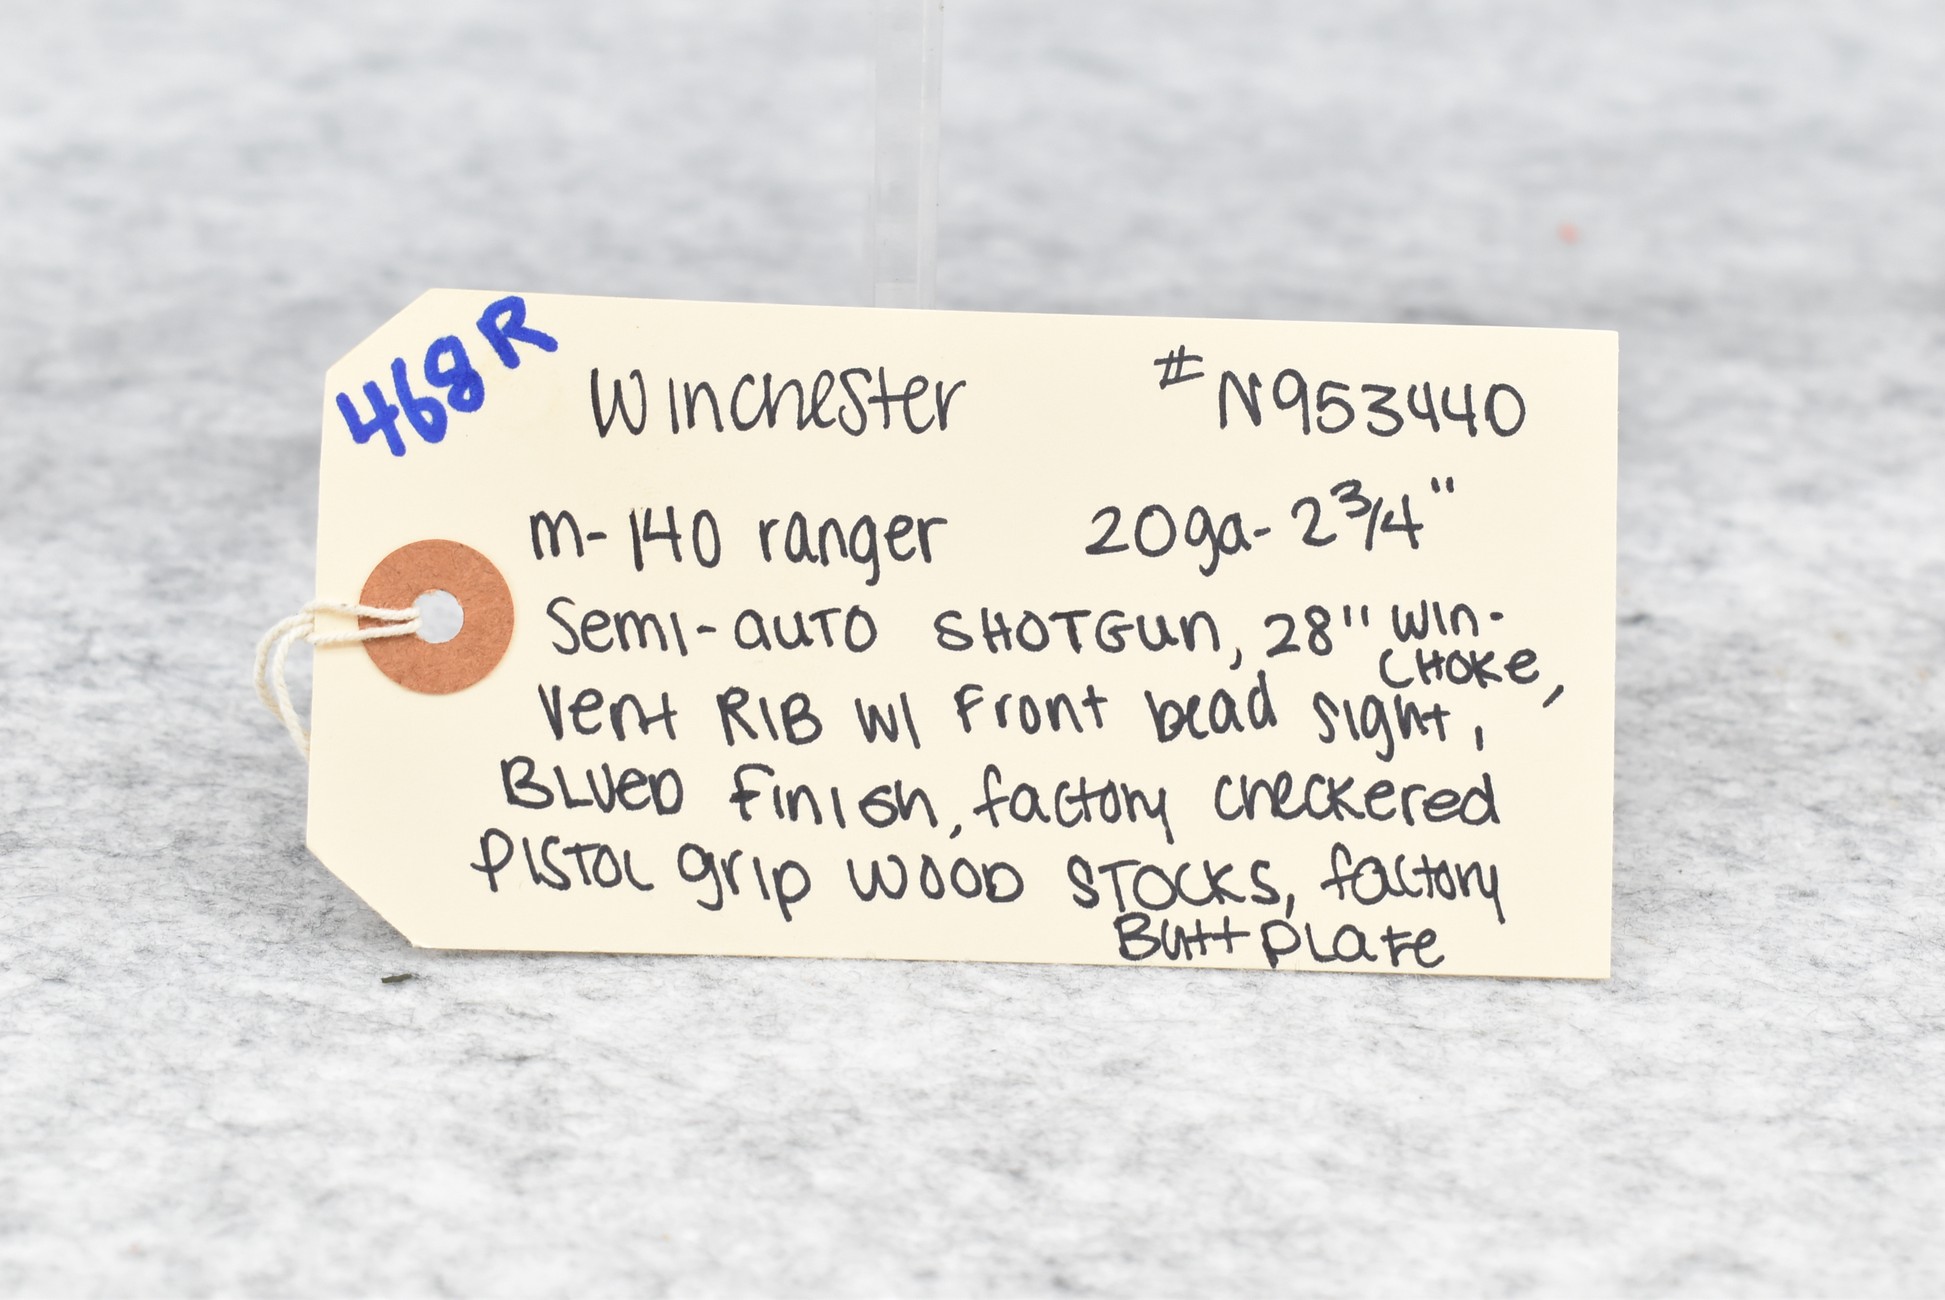 468R
Winchester #N953440
m-140 ranger 20ga- 2 3/4"
Semi-auto SHOTGun, 28" Win-
CHOKe,
Vent RIB w/ Front bead sight,
BLueD Finish, factory checkered
PISTOL grip WOOD STOCKS, factory
Butt PLate